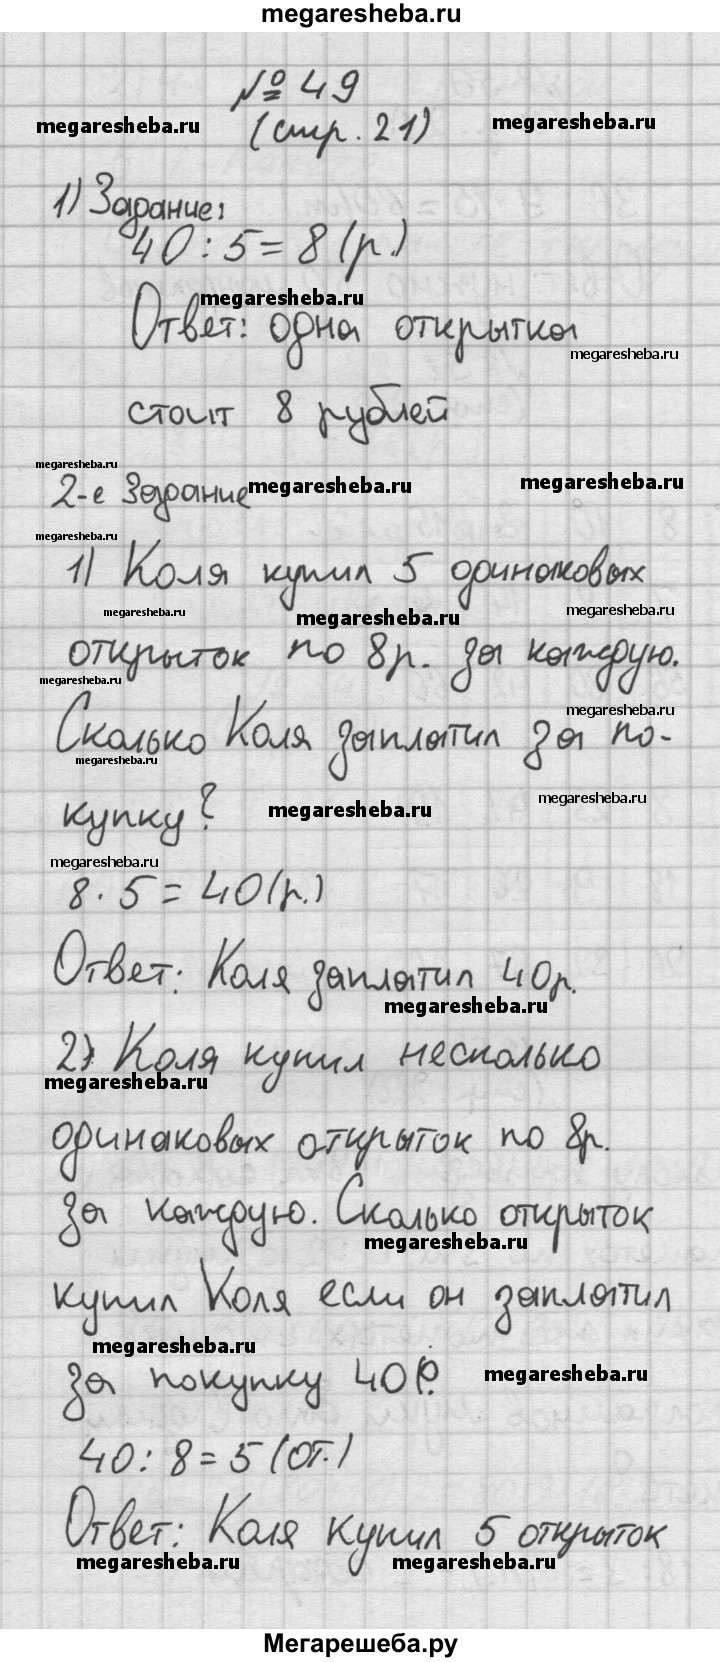 megaresheba.ru
№ 49
megaresheba.ru (стр. 21) megaresheba.ru
1) Задание:
40 : 5 = 8 (р.)
megaresheba.ru
Ответ: одна открытка
megaresheba.ru
стоит 8 рублей
megaresheba.ru
2-е Задание megaresheba.ru megaresheba.ru
megaresheba.ru
1) Коля купил 5 одинаковых
megaresheba.ru megaresheba.ru megaresheba.ru
открыток по 8р. за каждую.
megaresheba.ru megaresheba.ru
Сколько Коля заплатил за по-
megaresheba.ru
купку? megaresheba.ru megaresheba.ru
megaresheba.ru
8 · 5 = 40 (р.)
Ответ: Коля заплатил 40р.
megaresheba.ru
2) Коля купил несколько
megaresheba.ru
одинаковых открыток по 8р.
за каждую. Сколько открыток
megaresheba.ru
купил Коля если он заплатил
megaresheba.ru
за покупку 40 р? megaresheba.ru
40 : 8 = 5 (от.)
Ответ: Коля купил 5 открыток
megaresheba.ru megaresheba.ru
Мегарешеба.ру